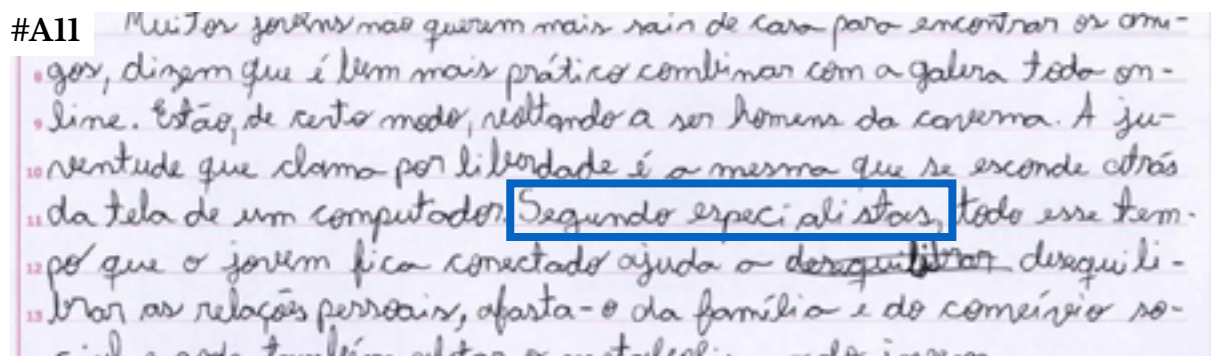 #A11
Muitos jovens não querem mais sair de casa para encontrar os ami-
8 gos, dizem que é bem mais prático combinar com a galera toda on-
9 line. Estão, de certo modo, voltando a ser homens da caverna. A ju-
10 ventude que clama por liberdade é a mesma que se esconde atrás
11 da tela de um computador. Segundo especialistas, todo esse tem-
12 po que o jovem fica conectado ajuda a desequilibrar desequili-
13 brar as relações pessoais, afasta-o da família e do convívio so-
cial e pode também afetar o